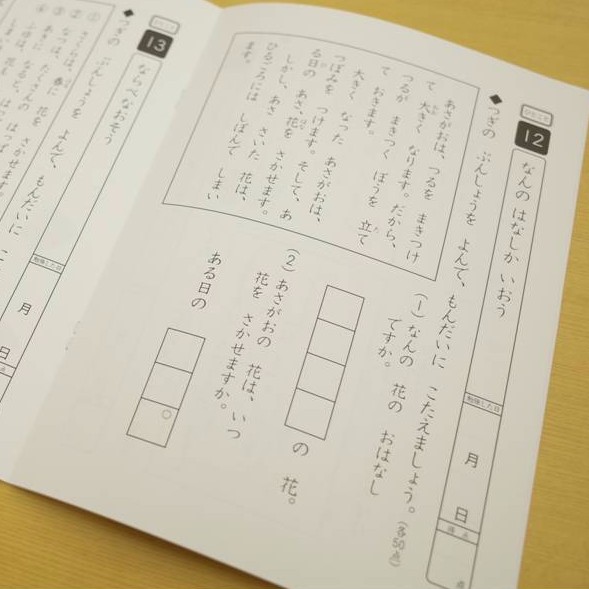 12
なんの はなしか いおう
勉強した日
月
日
得点
点
◆つぎの ぶんしょうを よんで、もんだいに こたえましょう。
(各50点)
あさがおは、つるを まきつけ
て 大きく なります。だから、
つるが まきつく ぼうを 立て
て おきます。
大きく なった あさがおは、
つぼみを つけます。そして、あ
る日の あさ、花を さかせます。
しかし、あさ さいた 花は、
ひるごろには しぼんで しまい
ます。
(1) なんの 花の おはなし
ですか。
の 花。
(2) あさがおの 花は、いつ
花を さかせますか。
ある日の
。
13
ならべなおそう
勉強した日
月
日
◆つぎの ぶんしょうを よんで、もんだいに こ
①
② さくらは、春に 花を さかせます。
③
④